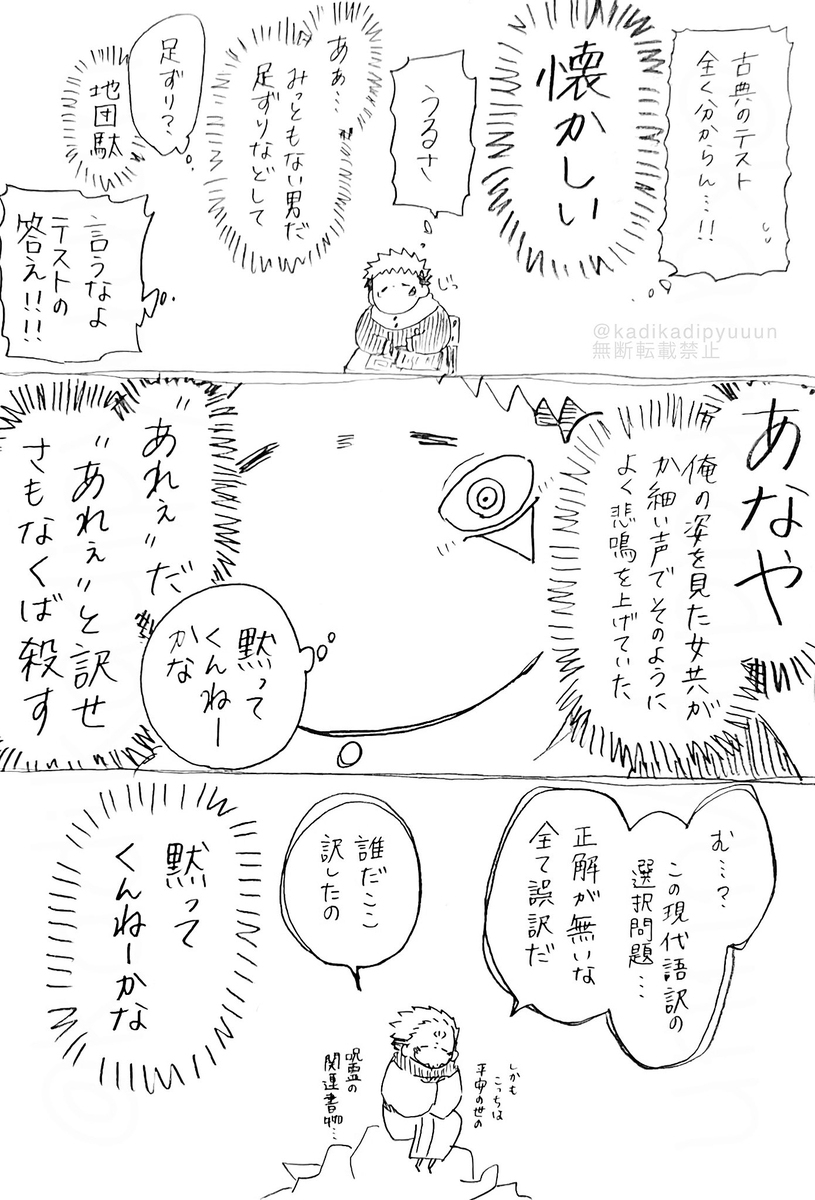 古典のテスト
全く分からん…!!
懐かしい
うるさ
じっ
ああ…
みっともない男だ
足ずりなどして
足ずり?
地団駄
言うなよ
テストの
答え!!!!
@kadikadipyuuun
無断転載禁止
あなや
俺の姿を見た女共が
か細い声でそのように
よく悲鳴を上げていた
黙って
くんねー
かな
"あれぇ"だ
"あれぇ"と訳せ
さもなくば殺す
む…?
この現代語訳の
選択問題…
正解が無いな
全て誤訳だ
誰だここ
訳したの
しかも
こっちは
平安の世の
呪霊の
関連書物…
黙って
くんねーかな